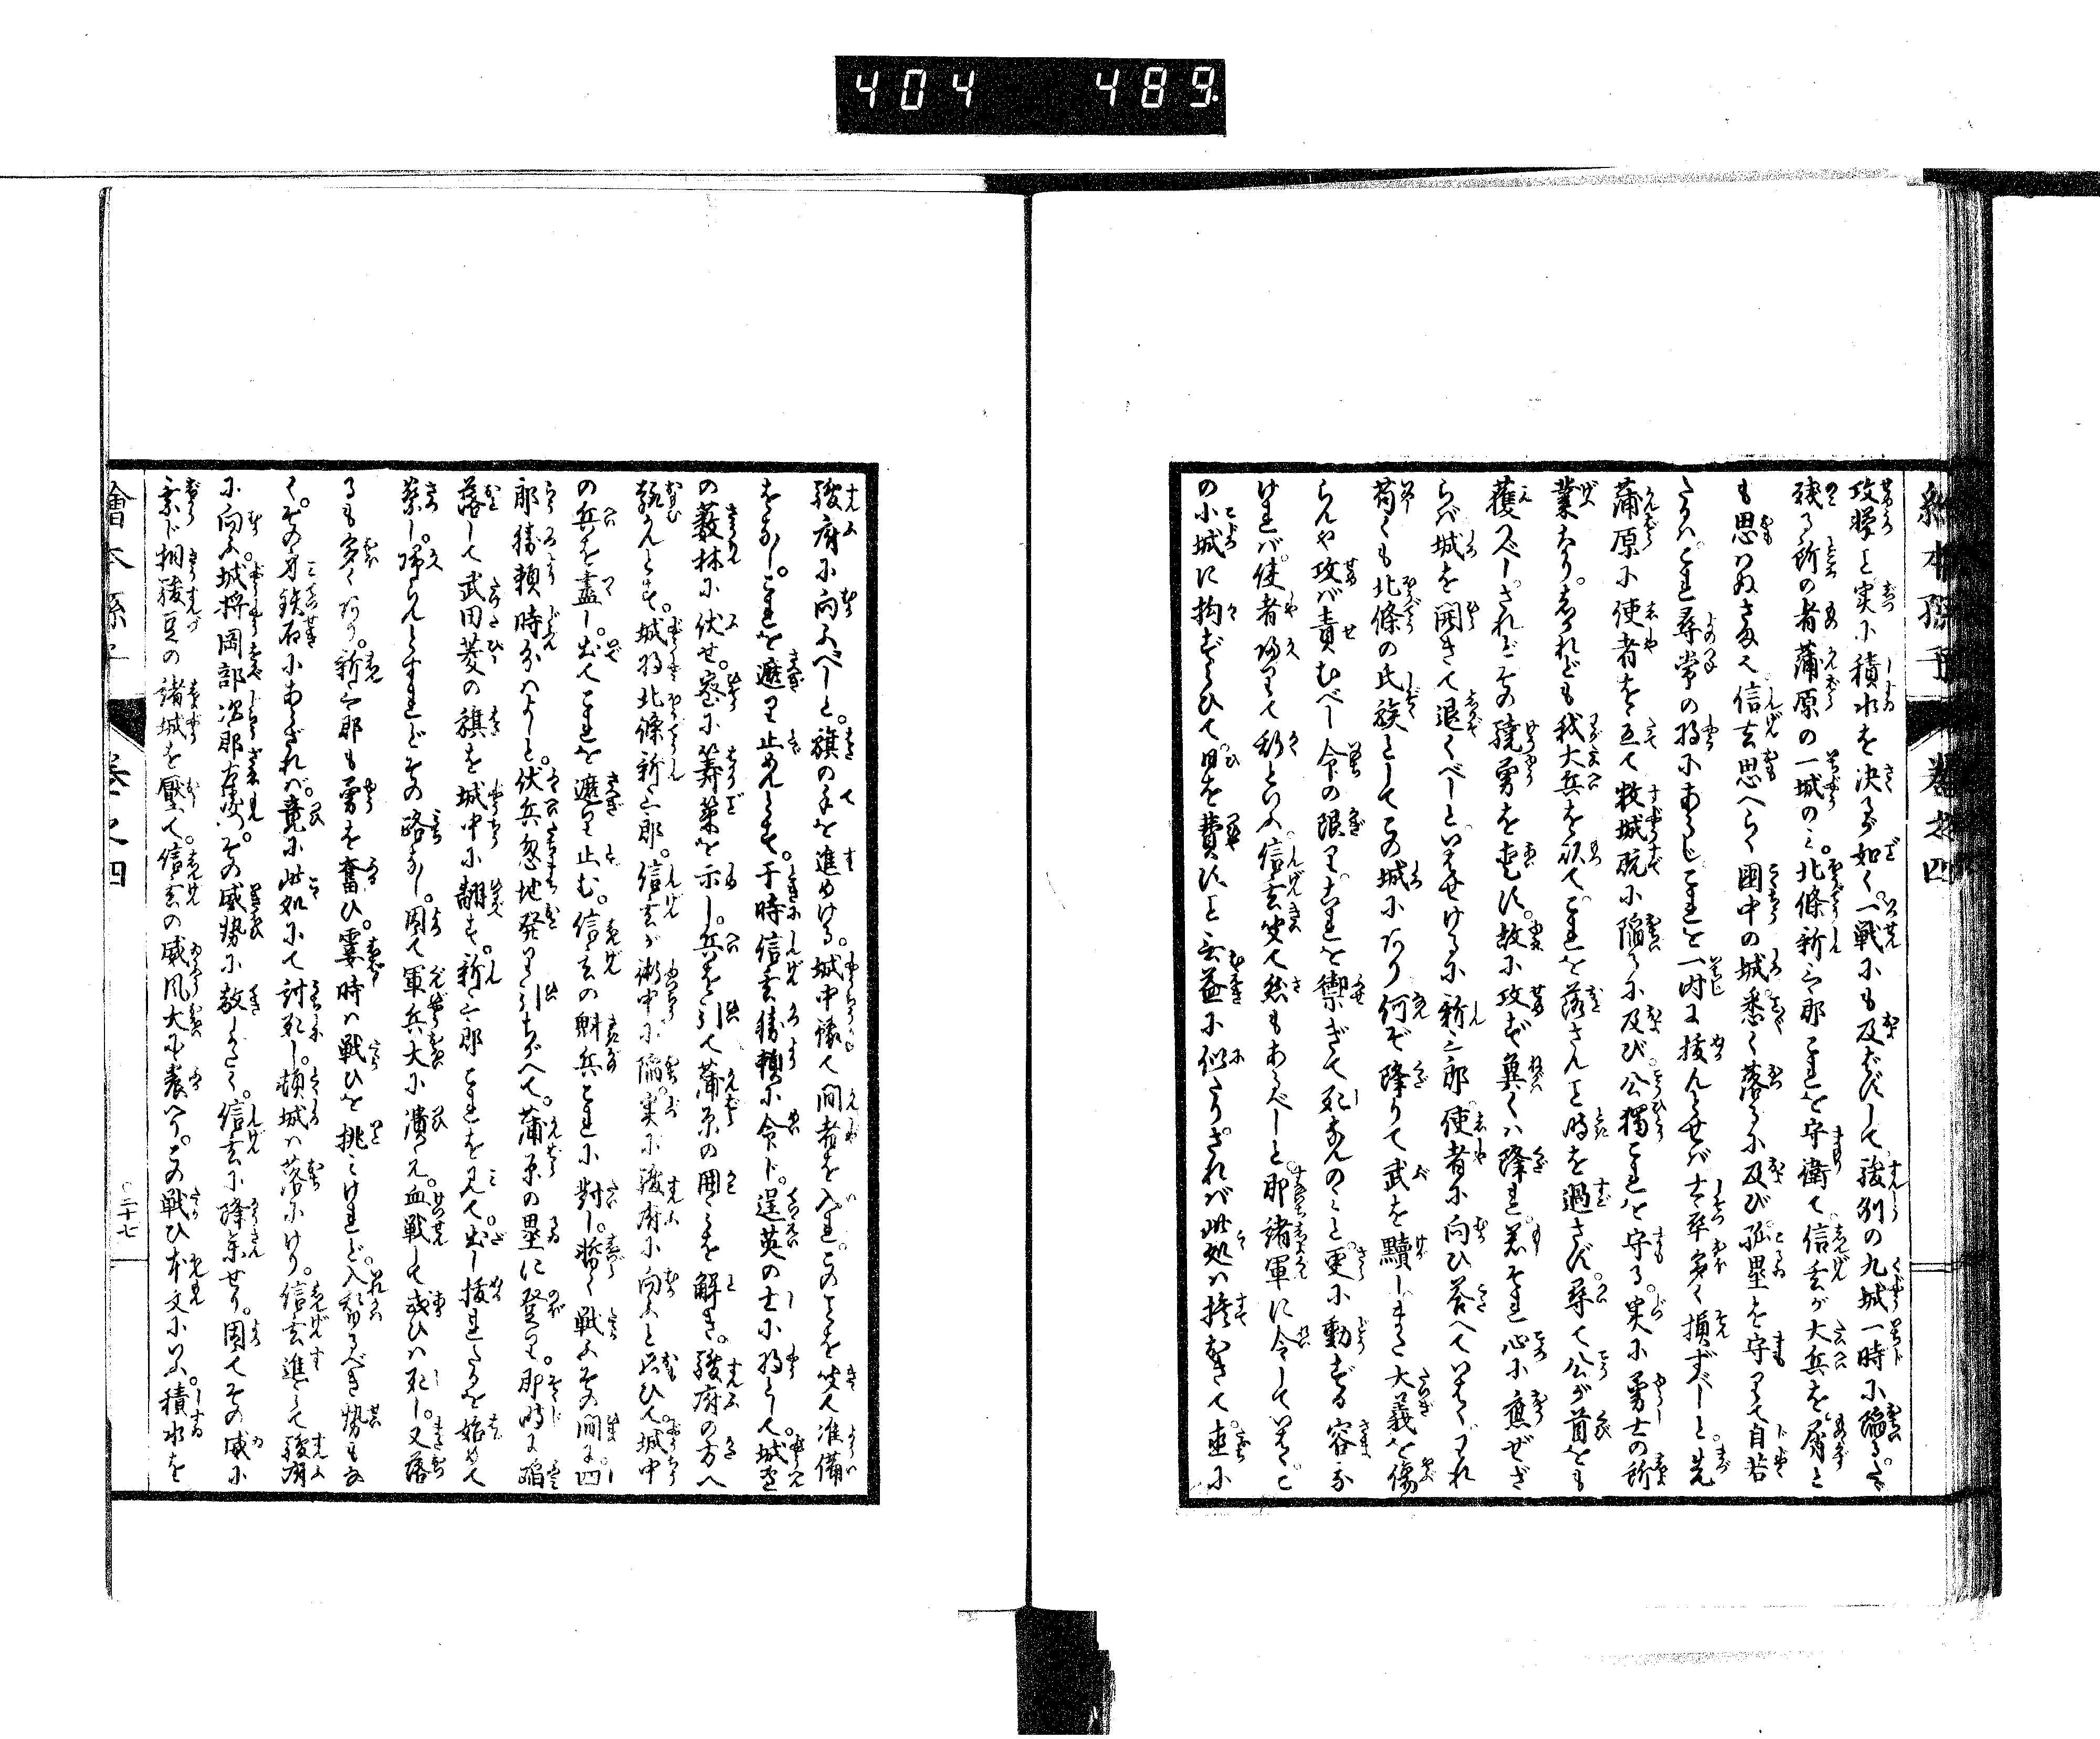 404 489
繪本孫子 巻之四
攻撃と実に積水を决るが如く。一戦にも及ばずして駿州の九城一時に陥る。
残る所の者蒲原の一城のミ。北條新三郎これを守衛て信玄が大兵を屑と
も思ハぬさまなり。信玄思へらく国中の城悉く落るに及び。孤塁を守りて自若
たるハ。これ尋常の将にあらじ。これを一時に抜んとせバ士卒多く損ずべしと。先
蒲原に使者を立て数城既に陥るに及び。公獨これを守る。実に勇士の所
業なり。しかれども我大兵を以て。これを落さんと時を過さず。尋て公が首をも
獲べし。されどその驍勇を惜む。故に攻ず冀くハ降れ。若それ心に應ぜざ
らバ城を開きて退くべしといはせけるに新三郎。使者に向ひ答へていはく。われ
苟くも北條の氏族としてこの城にあり何ぞ降りて武を黷しまた大義を傷
らんや攻バ責むべし。命の限りこれを禦ぎて死なんのミと。更に動ずる容な
けれバ。使者帰りて斯といふ。信玄笑て然もあるべしと。即諸軍に令していはく。こ
の小城に拘づらひて日を費すと無益に似たり。されバ此処ハ捨おきて。直に
駿府に向ふべしと。旗の手を進めける。城中謀て間者を入れ。このことを聞て准備
をなし。これを遮り止めんとす。于時信玄勝頼に命じ。逞英の士に将として。城辺
の薮林に伏せ。密に籌策を示し。兵を引て蒲原の囲ミを解き。駿府の方へ
趣んとす。城将北條新三郎。信玄が術中に陥。実に駿府に向ふと思ひ。城中
の兵を盡し。出てこれを遮り止む。信玄の觧兵これに對し。暫く戦ふその間に四
郎勝頼時分ハよしと。伏兵忽地発り引ちがへて。蒲原の塁に登り。即時に陥
落して武田菱の旗を城中に翻す。新三郎これを見て。出し抜れたるを始めて
察し。帰らんとすれどその路なし。因て軍兵大に潰え。血戦して或ひハ死し。又落
るも多くあり。新三郎も勇を奮ひ。霎時ハ戦ひを挑ミけれど。入替るべき勢もな
く。その身鉄石にあらざれバ。竟に此処にて討死し。頓城ハ落にけり。信玄進ミて駿府
に向ふ。城将岡部次郎右衛門。その威勢に敵しがたく。信玄に降参せり。因てその威に
乗じ相駿豆の諸城を壓て。信玄の威風大に震へり。この戦ひ本文にいふ。積水を
繪本孫子 巻之四 二十七